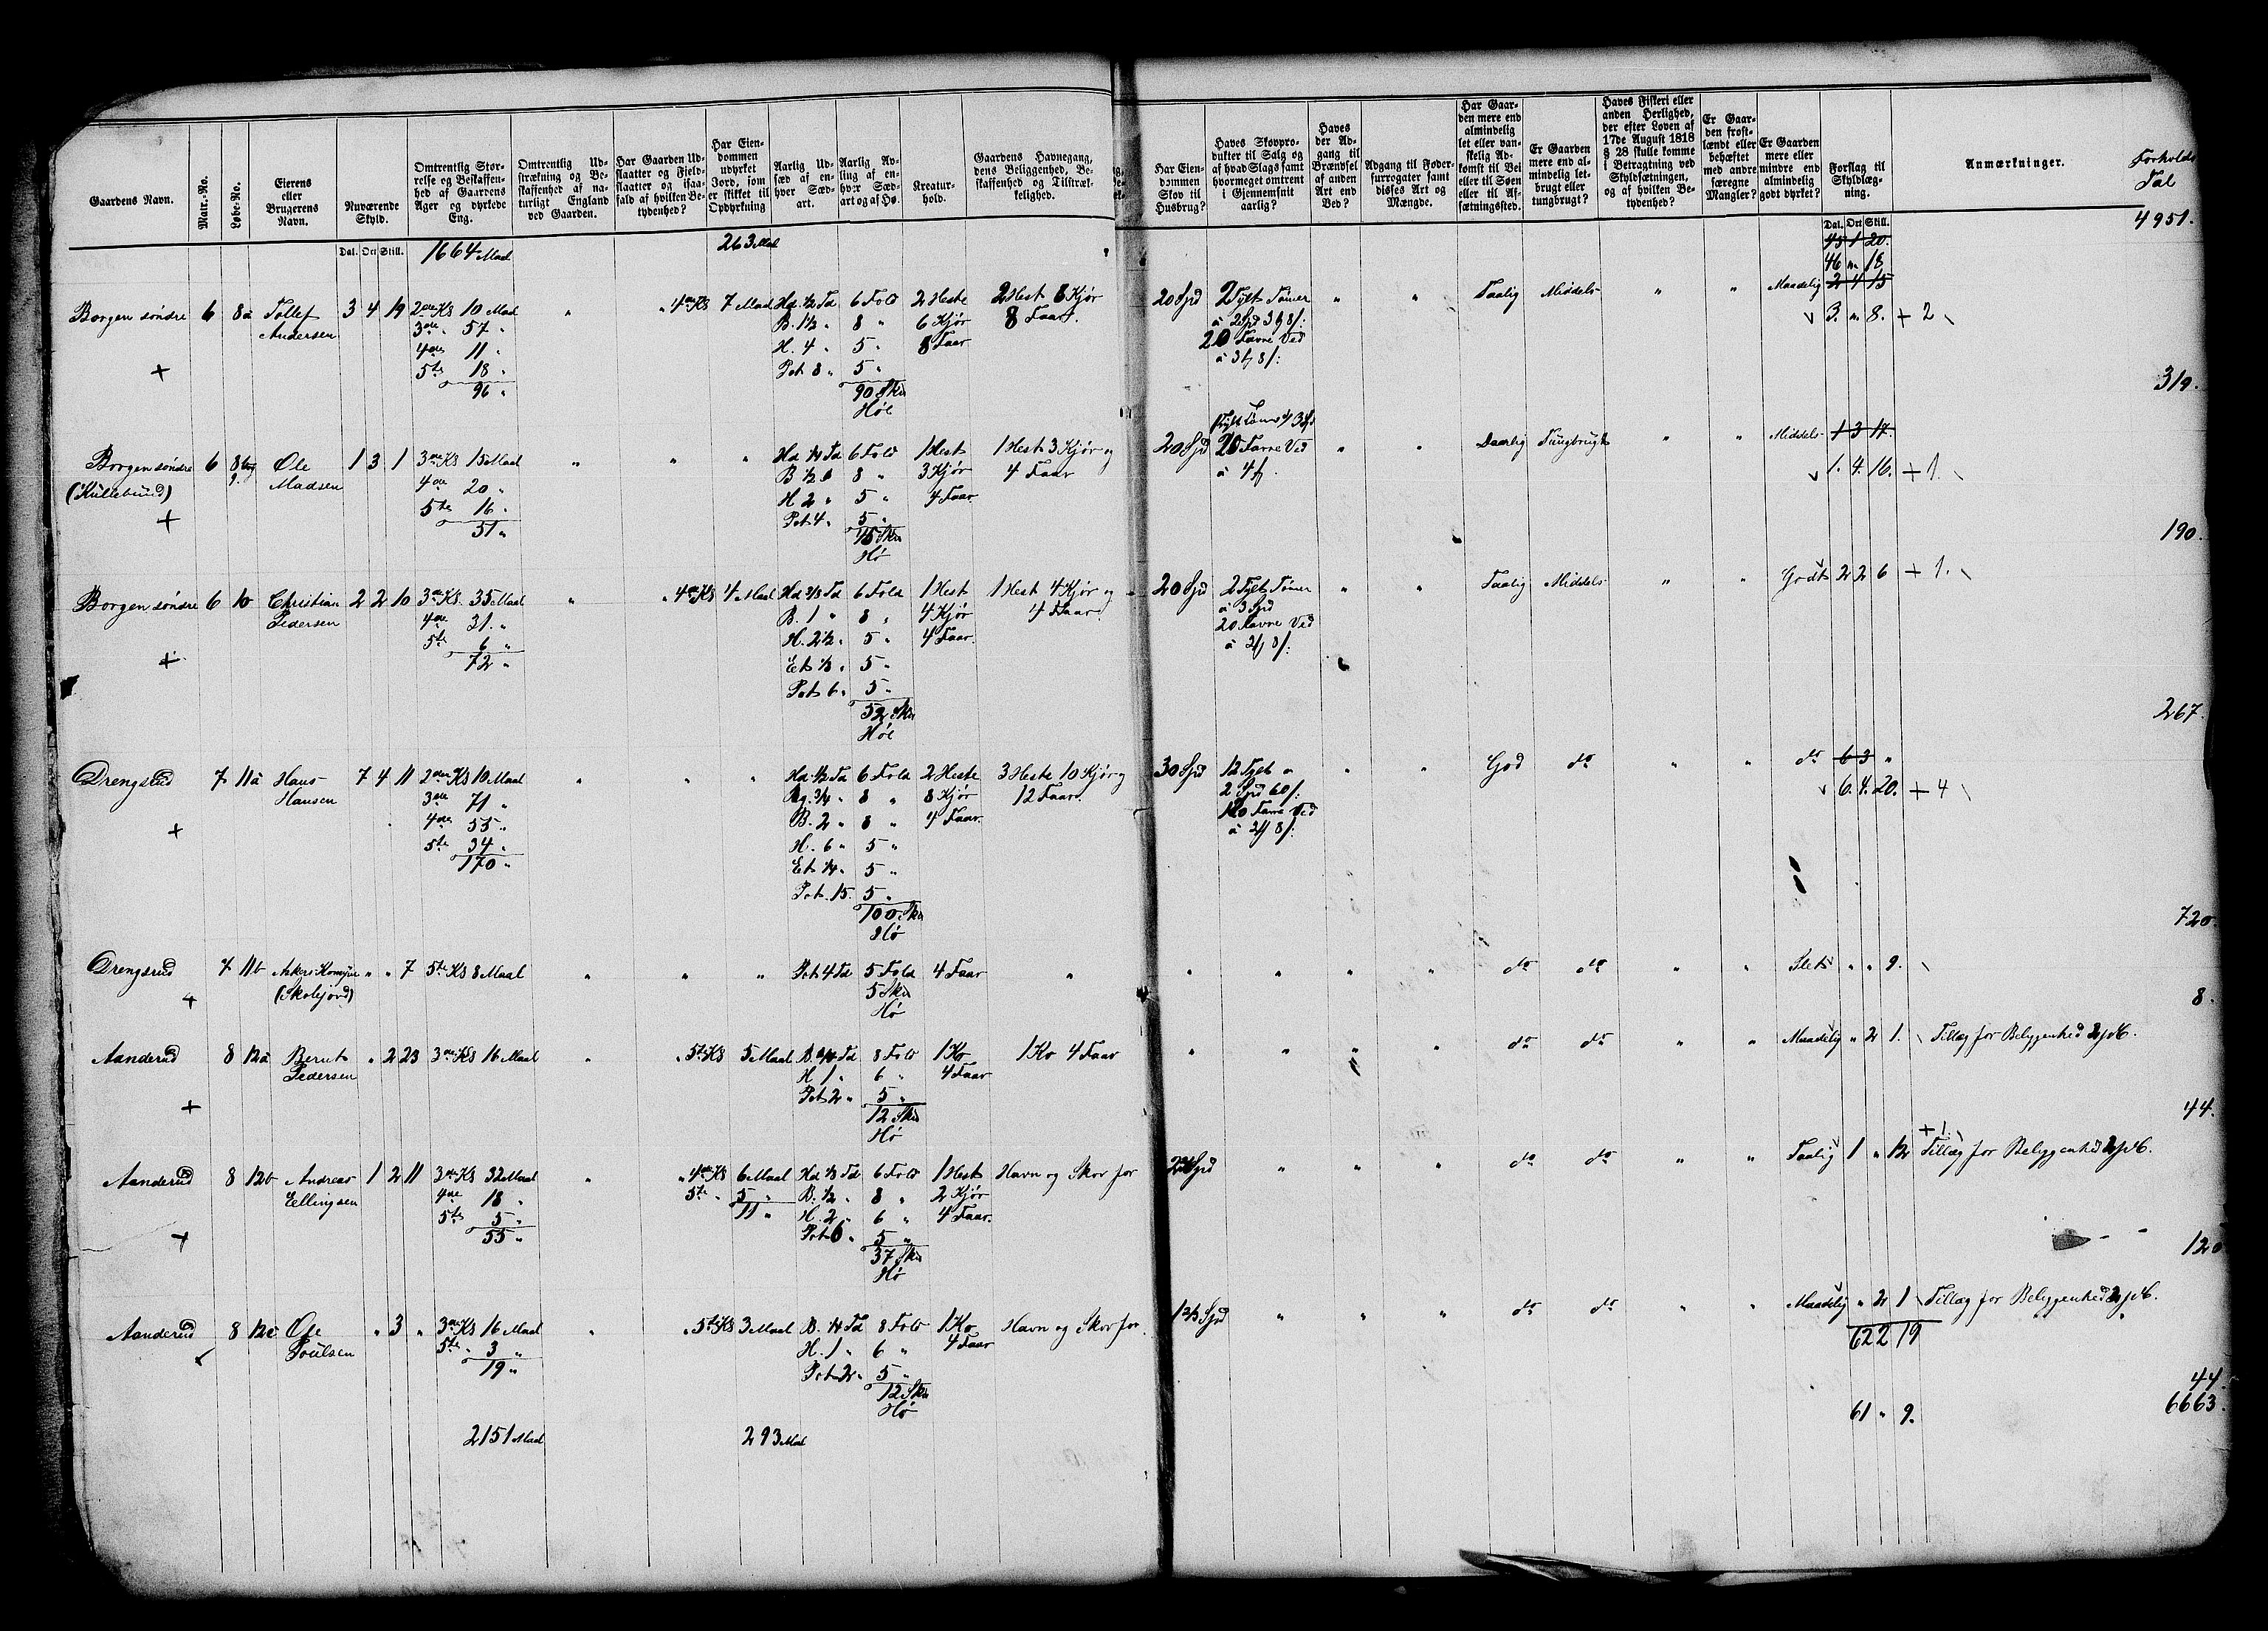 Gaardens Navn. Matr.-No. Løbe-No. Eierens eller Brugerens Navn. Nuværende Skyld. Omtrentlig Størrelse og Beskaffenhed af Gaardens Ager og dyrkede Eng. Omtrentlig Udstrækning og Beskaffenhed af naturligt England ved Gaarden. Har Gaarden Udslaatter og Fjeldslaatter og isaafald af hvilken Betydenhed? Har Eiendommen udyrket Jord, som er skikket til Opdyrkning Aarlig Udsæd af enhver Sædart. Aarlig Avling af enhver Sædart og af Hø. Kreaturhold. Gaardens Havnegang, dens Beliggenhed, Beskaffenhed og Tilstrækkelighed.
Har Eiendommen Skov til Husbrug? Haves Skovprodukter til Salg og af hvad Slags samt hvormeget omtrent i Gjennemsnitt aarlig? Haves der Adgang til Brændsel af anden Art end Ved? Adgang til Foderfurrogater samt disses Art og Mængde. Har Gaarden mere end almindelig let eller vanskelig Adkomst til Bei eller til Søen eller til Afsætningssted. Er Gaarden mere end almindelig letbrugt eller tungbrugt? Haves Fiskeri eller anden Herlighed, der efter Loven af 17de August 1818 § 28 skulle komme i Betragtning ved Skyldsætningen, og af hvilken Betydenhed? Er Gaarden frostlændt eller behæftet med andre særegne Mangler? Er Gaarden mere eller mindre end almindelig godt dyrket? Forslag til Skyldlægning. Anmærkninger. Forholds Tal
Dal. Ort Skill. 1664 Maal 263 Maal Dal. Ort Skill. 4951.
45 1 20.
46 " 18
Borgen søndre 6 8a Tollef 3 4 19 2den Kl 10 Maal " " 4de Kl 7 Maal Hd 1/2 Td 6 Fold 2 Heste 2 Hest 8 Kjør 20 Spd 2 Tylt Tømer " " Taalig Middels " " Maadelig 2 4 15
Andersen 3die " 57 " B. 1 1/2 " 8 " 6 Kjør 8 Faar. 3. " 8. + 2
4de 11 " H. 4 " 5 " 8 Faar 20 Favne Ved
+ 5te 18 " Pot 8 " 5 "
96 " 90 Skp 319.
Høe
Borgen søndre 6 Ole 1 3 1 3die Kl 15 Maal " " " Hd 1/4 Td 6 Fold 1 Hest 1 Hest 3 Kjør og 20 Spd 20 Favne Ved " " Daarlig Tungbrugt " " Middels 1 3 17.
(Kullebund) 9. Madsen 4de 20 " B 1/2 " 8 " 3 Kjør 4 Faar 1. 4. 16. + 1.
5te 16 " H 2 " 5 " 4 Faar
+ 51 " Pot 4 " 5 "
45 Skp 190.
Hø
Borgen søndre 6 10 Christian 2 2 10 3die Kl 35 Maal " " 4de Kl 4 Maal Hd 2/3 Td 6 Fold 1 Hest 1 Hest 4 Kjør og 20 Spd 2 Tylt Tømer " " Taalig Middels " " Godt 2 2 6 + 1.
Pedersen 4de 31 " B. 1 " 8 " 4 Kjør 4 Faar. á 3 Spd
5te 6 " H. 2 1/2 " 5 " 4 Faar. 20 Favne Ved
+ 72 " Ert 1/3 " 5 "
Pot 6 " 5 "
52 Skp 267.
Høe
Drengsrud 7 11a Hans 7 4 11 2den Kl 10 Maal " " " Hd 1/2 Td 6 Fold 2 Heste 3 Heste 10 Kjør og 30 Spd 12 Tylt " " " God do " " do 6 3 "
Hansen 3die 71 " Rg. 3/4 " 8 " 8 Kjør 12 Faar. 2 Spd 60 6. 4. 20. + 4
+ 4de 55 " B. 2 " 8 " 4 Faar. Favne Ved
5te 34 " H. 6 " 5 "
170 " Ert 1/4 " 5 "
Pot. 15. 5 "
100 Skp 720.
Hø
Drengsrud 7 11b Askers Komune " " 7 5te Kl 8 Maal " " " Pot 4 Td 5 Fold 4 Faar " " " " " do do " " Slet " " 9.
+ (Skolejord) 5 Skp 8.
Hø
Aanderud 8 12a Bernt " 2 23 3die Kl 16 Maal " " 5te Kl 5 Maal B. 1/4 Td 8 Fold 1 Ko 1 Ko 4 Faar " " " " do do " " Maadelig " 2 1. Tillæg for Beliggenhed
Pedersen H 1 " 6 " 4 Faar
+ Pot 2 " 5 "
12 Skp 44.
Hø
+ 1.
Aanderud 8 12b Andreas 1 2 11 3die Kl 32 Maal " " 4de Kl 6 Maal Hd 1/3 Td 6 Fold 1 Hest Havn og Skov for 2 Spd " " " do do " " Taalig 1 " 12 Tillæg for Beliggenhed
Ellingsen 4de 18 " 5te " 5 " B. 1/2 " 8 " 2 Kjør
5te 5 " 11 " H. 2 " 6 " 4 Faar.
+ 55 " Pot 6 " 5 " 120
37 Skp
Hø
Aanderud 8 12c Ole " 3 " 3die Kl 16 Maal " " 5te Kl 3 Maal B. 1/4 Td 8 Fold 1 Ko Havn og Skov for 1 2/3 Spd " " " do do " " Maadelig " 2 1 Tillæg for Beliggenhed
Poulsen 5te " 3 " H. 1 " 6 " 4 Faar 62 2 19
19 " Pot 2 " 5 "
12 Skp 44.
Hø 61 " 9. 6663.
2151 Maal 293 Maal